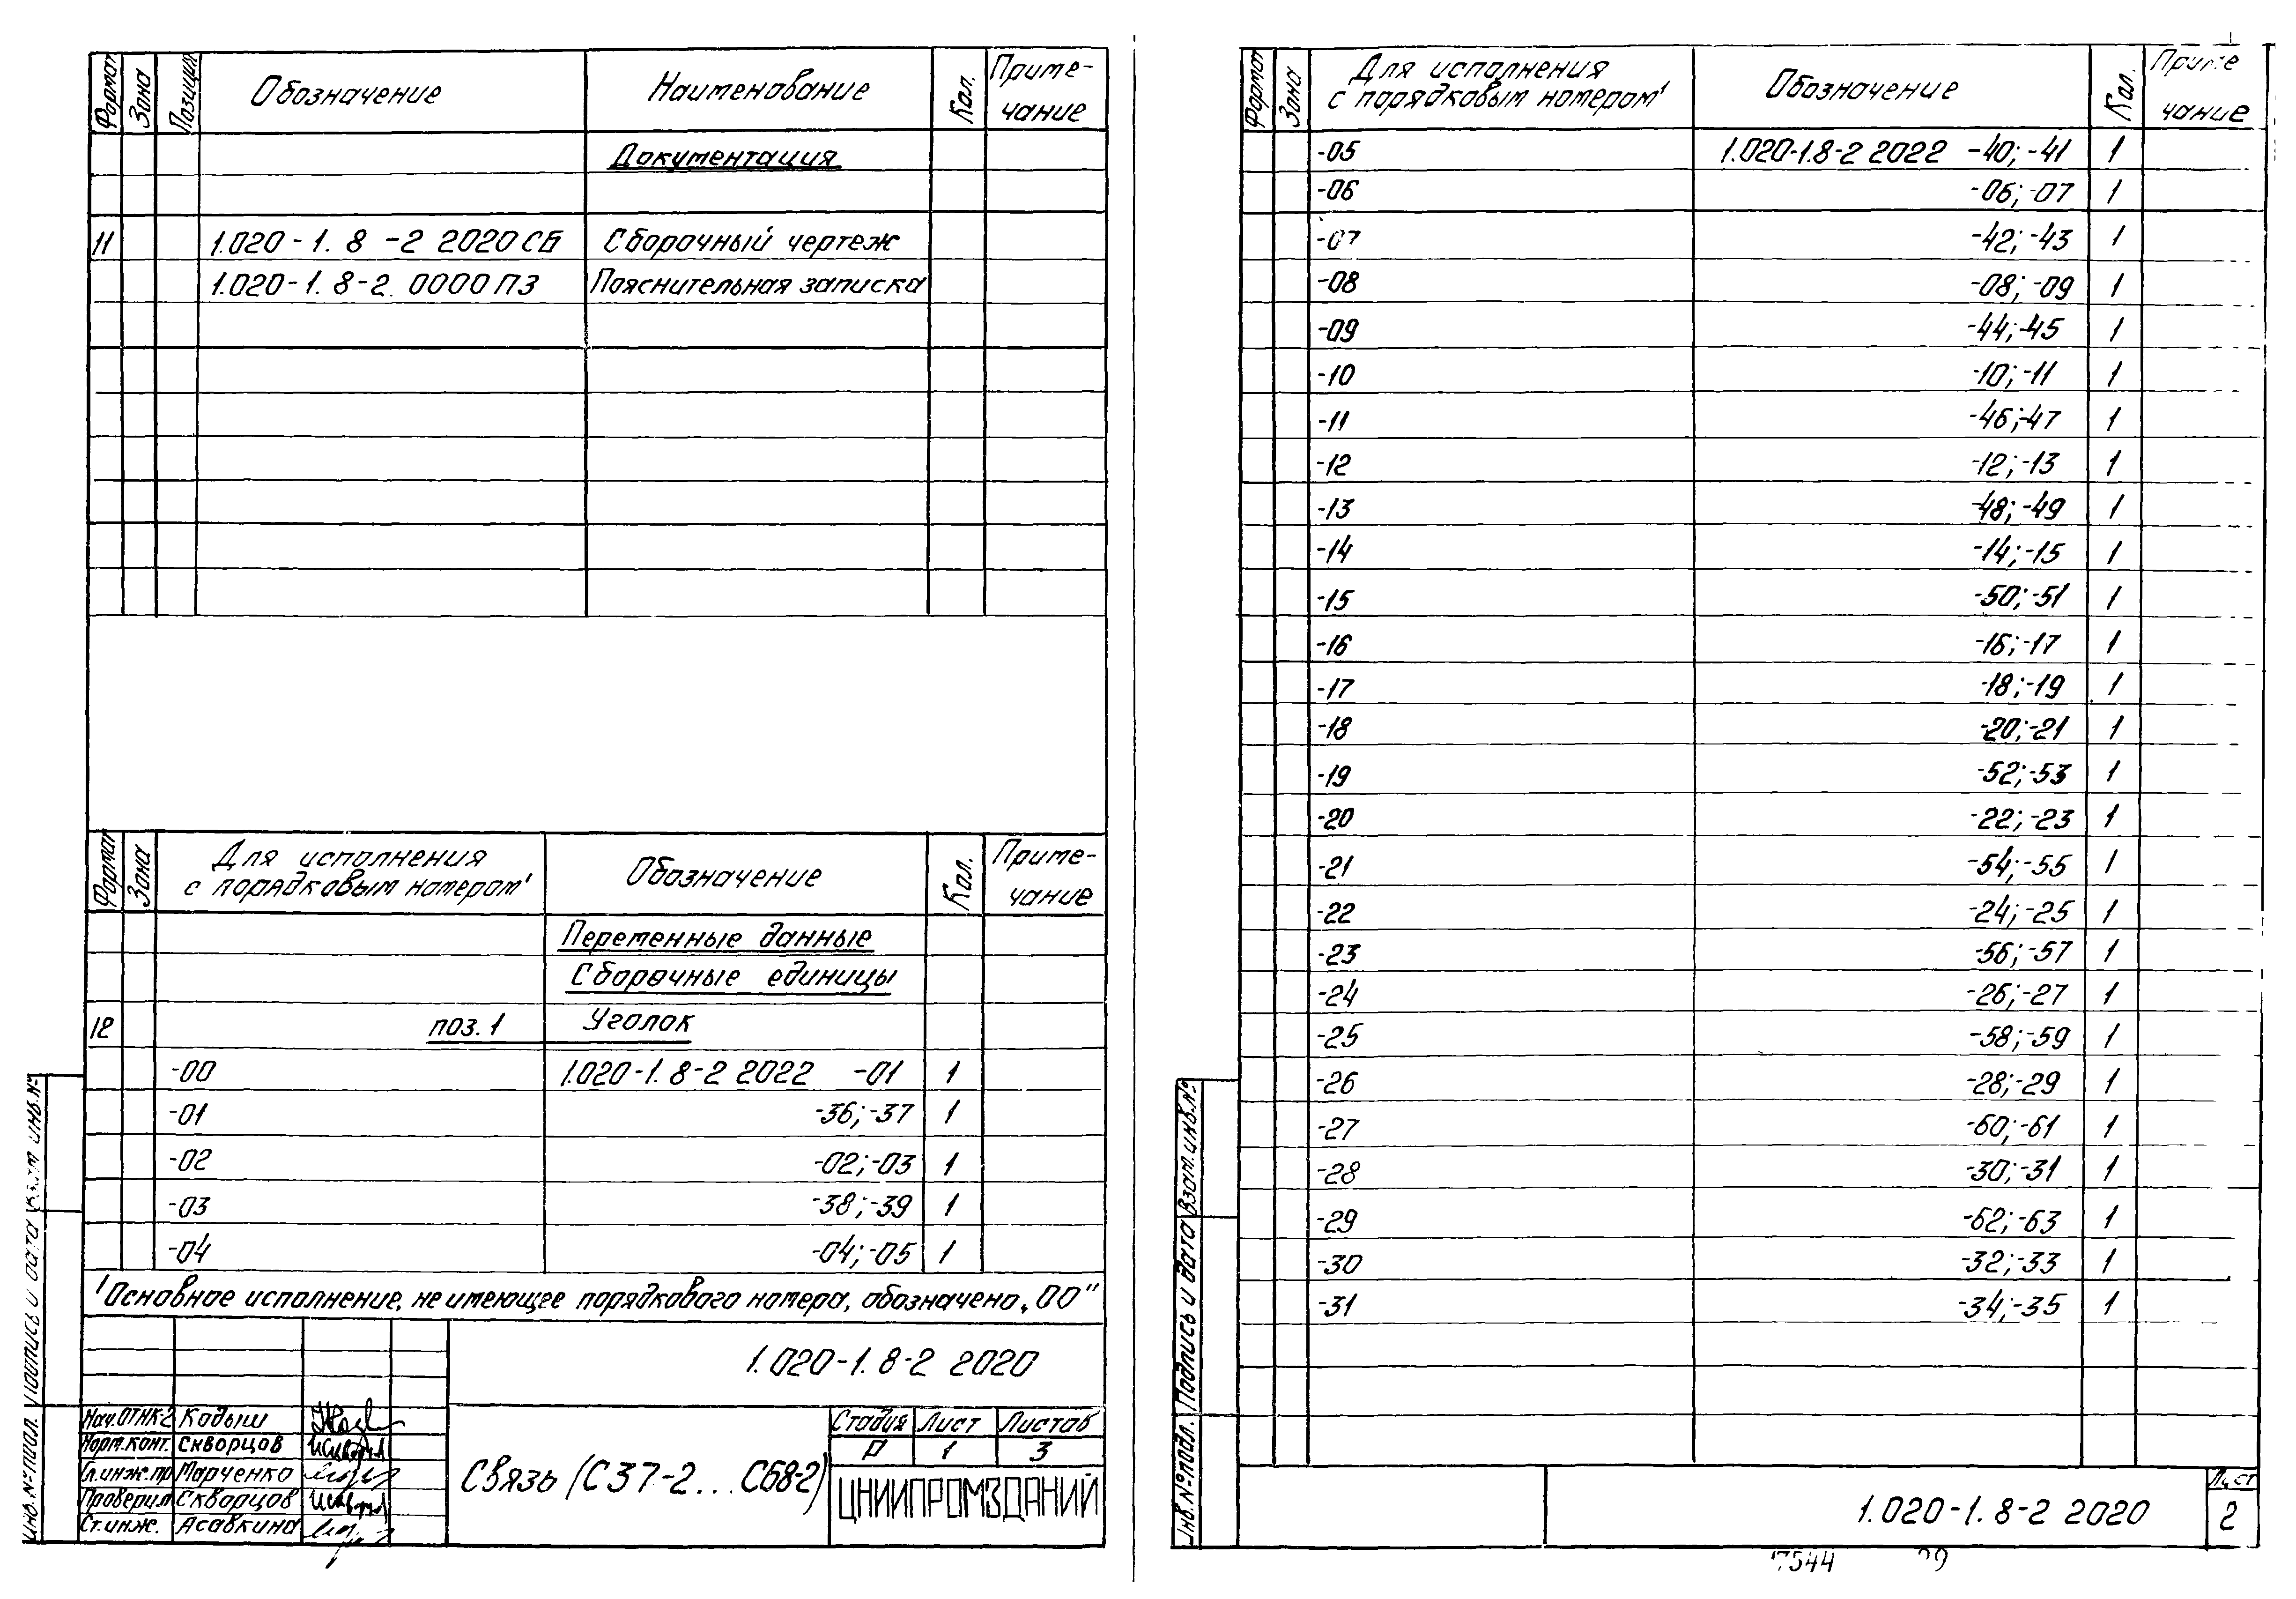 Формат Зона Позиция Обозначение Наименование Кол. Приме-
чание
Документация
11 1.020-1.8-2 2020СБ Сборочный чертеж
1.020-1.8-2. 0000ПЗ Пояснительная записка
Формат Зона Для исполнения
с порядковым номером¹ Обозначение Кол. Приме-
чание
Переменные данные
Сборочные единицы
12 поз. 1 Уголок
-00 1.020-1.8-2 2022 -01 1
-01 -36; -37 1
-02 -02; -03 1
-03 -38; -39 1
-04 -04; -05 1
¹Основное исполнение, не имеющее порядкового номера, обозначено „00"
1.020-1.8-2 2020
Нач.ОТНК-2 Кодыш
Норм.конт. Скворцов
Гл.инж.пр Марченко
Проверил Скворцов
Ст.инж. Асавкина
Связь (С37-2...С68-2)
Стадия Лист Листов
Р 1 3
ЦНИИПРОМЗДАНИЙ
Инв.№подл. Подпись и дата Взам.инв.№
Формат Зона Для исполнения
с порядковым номером¹ Обозначение Кол. Приме
чание
-05 1.020-1.8-2 2022 -40; -41 1
-06 -06; -07 1
-07 -42; -43 1
-08 -08; -09 1
-09 -44; -45 1
-10 -10; -11 1
-11 -46; -47 1
-12 -12; -13 1
-13 -48; -49 1
-14 -14; -15 1
-15 -50; -51 1
-16 -16; -17 1
-17 -18; -19 1
-18 -20; -21 1
-19 -52; -53 1
-20 -22; -23 1
-21 -54; -55 1
-22 -24; -25 1
-23 -56; -57 1
-24 -26; -27 1
-25 -58; -59 1
-26 -28; -29 1
-27 -60; -61 1
-28 -30; -31 1
-29 -62; -63 1
-30 -32; -33 1
-31 -34; -35 1
Инв.№подл. Подпись и дата Взам.инв.№
1.020-1.8-2 2020
Лист
2
7544